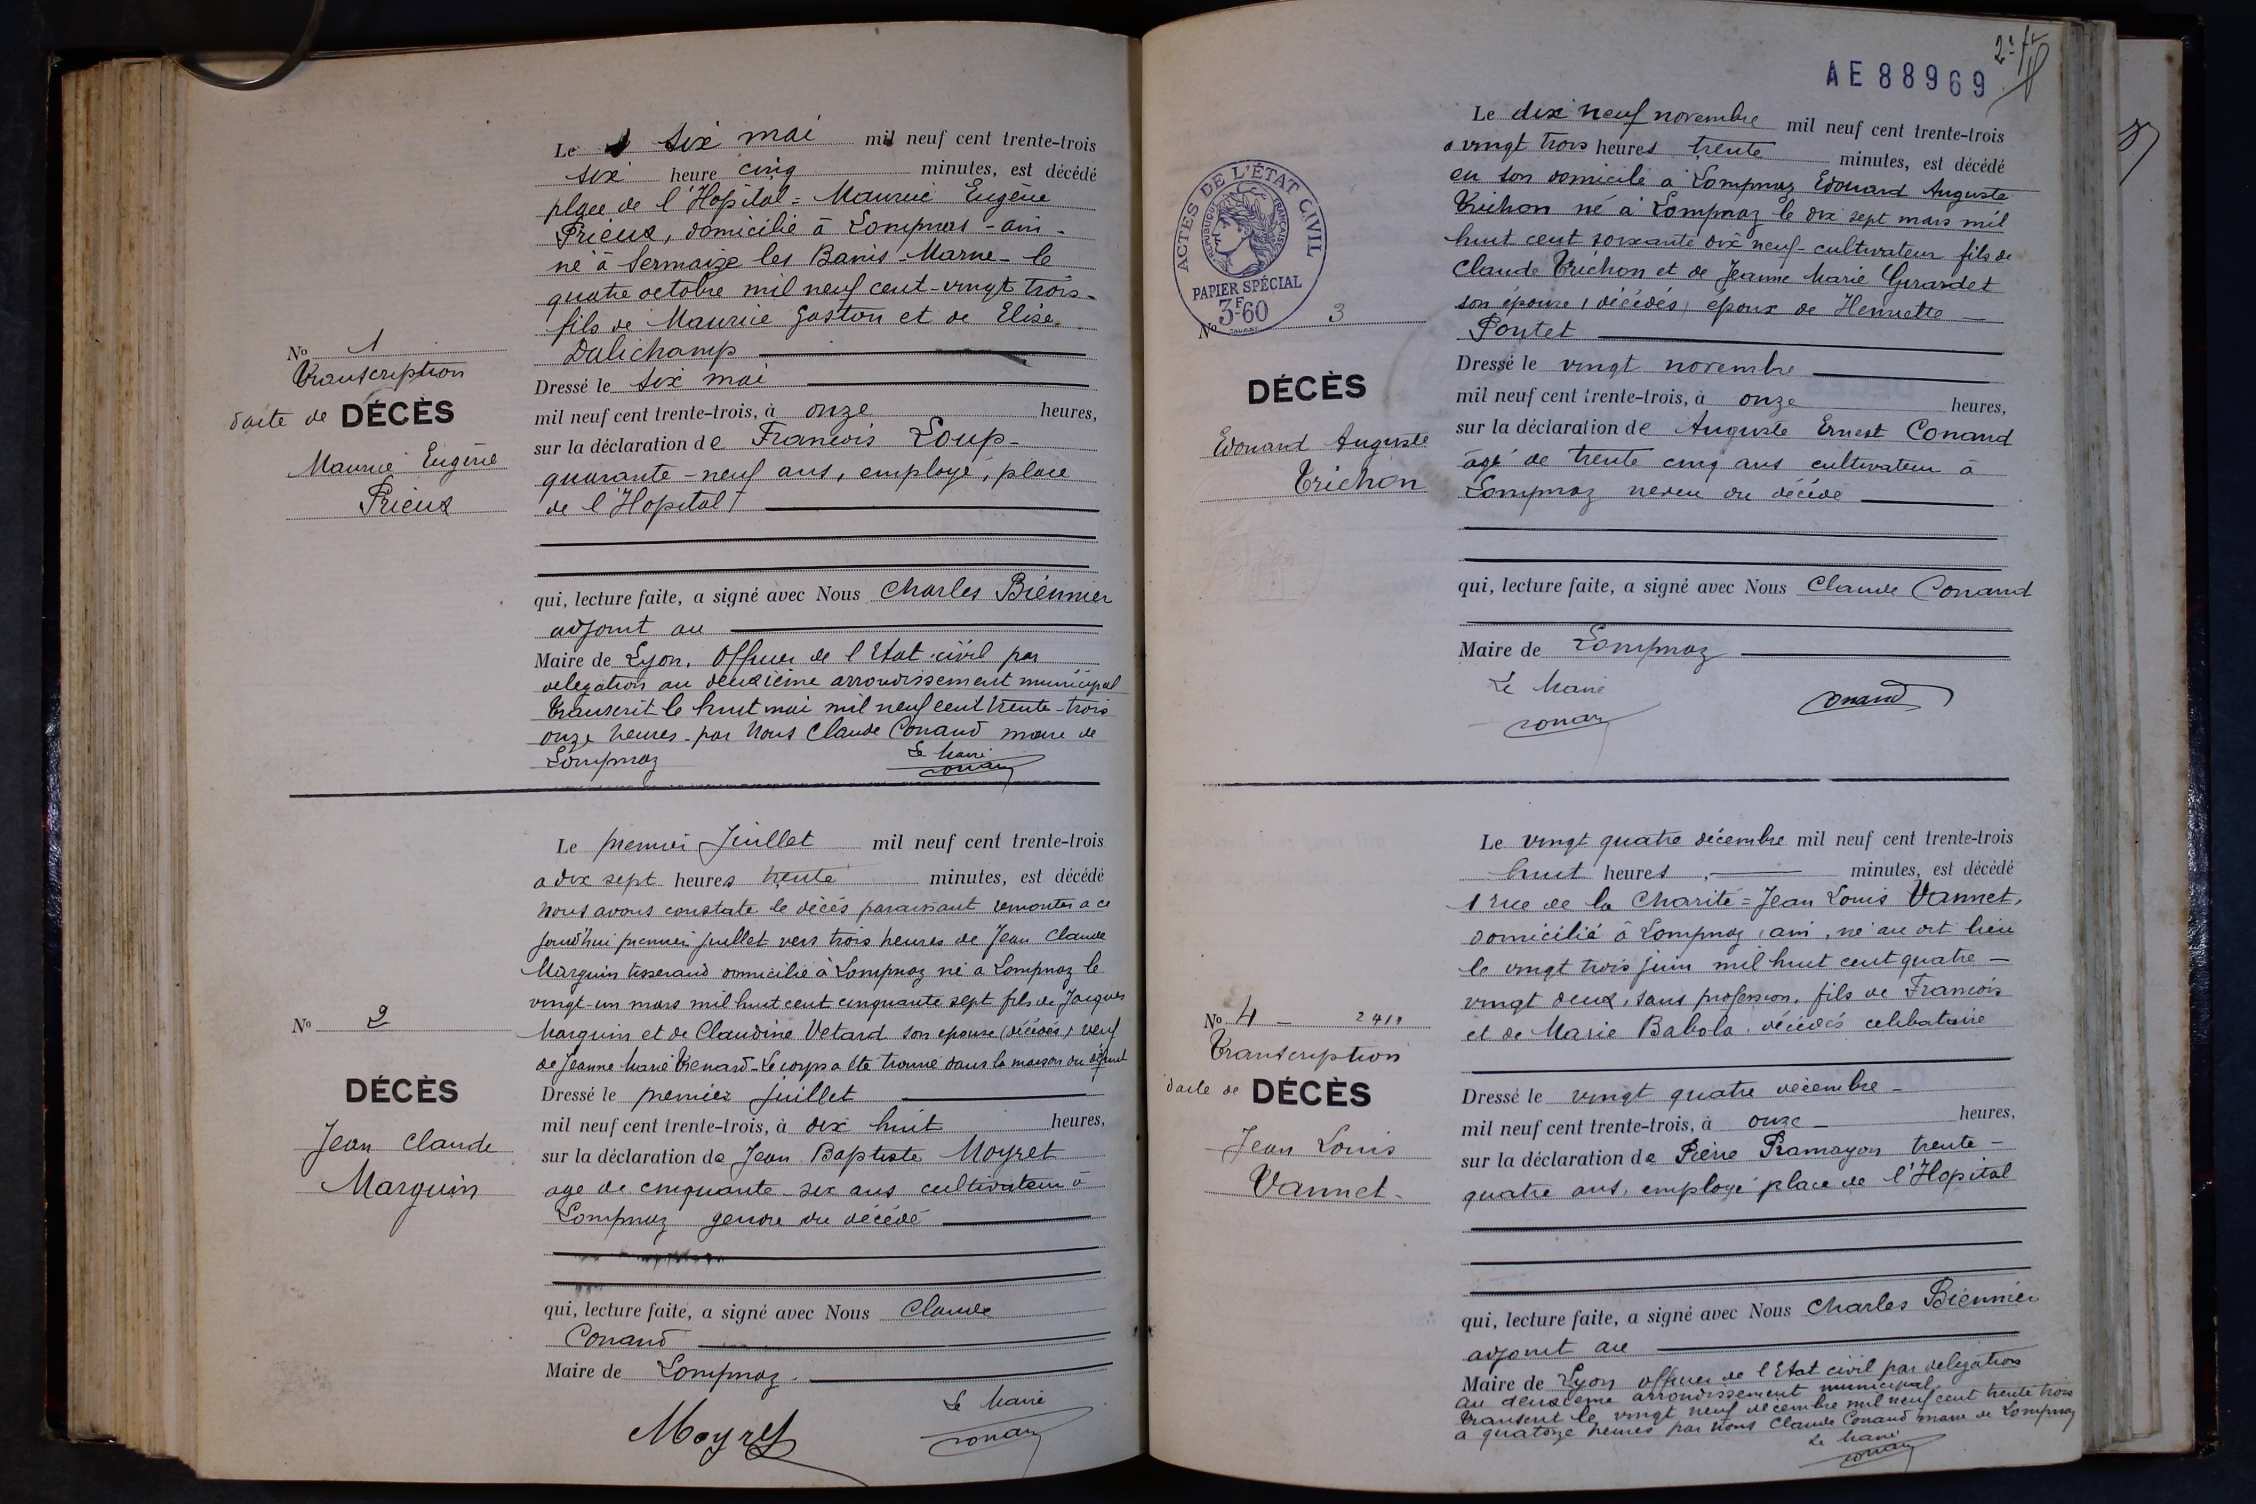 Le six mai mil neuf cent trente-trois
six heure cinq minutes, est décédé
place de l'Hopital = Maurice Eugène
Prieux, domicilié à Lompnas - ain -
né à Sermaize les Bains - Marne - le
quatre octobre mil neuf cent - vingt trois -
fils de Maurice Gaston et de Elise
Dalichamp
No 1
Transcription
d'acte de DÉCÈS
Maurice Eugène
Prieux
Dressé le six mai
mil neuf cent trente-trois, à onze heures,
sur la déclaration de Francois Loup -
quarante - neuf ans, employé, place
de l'Hopital
qui, lecture faite, a signé avec Nous Charles Biennier
adjoint au
Maire de Lyon, Officier de l'Etat civil par
delegation au deuxième arrondissement municipal
Transcrit le huit mai mil neuf cent trente - trois
onze heures - par Nous Claude Conand maire de
Lompnaz
Le Maire
Conand
Le premier Juillet mil neuf cent trente-trois
a dix sept heures trente minutes, est décédé
Nous avons constate le décés paraissant remonter a ce
jourd'hui premier juillet vers trois heures de Jean Claude
Marguin tisserand domicilié à Lompnaz né a Lompnaz le
vingt-un mars mil huit cent cinquante sept fils de Jacques
Marguin et de Claudine Vetard son epouse (décédés) veuf
de Jeanne Marie Trenard - Le corps a été trouvé dans la maison du défunt
No 2
DÉCÈS
Jean Claude
Marguin
Dressé le premier juillet
mil neuf cent trente-trois, à dix huit heures,
sur la déclaration de Jean Baptiste Moyret
age de cinquante - six ans cultivateur à
Lompnaz gendre du décédé
qui, lecture faite, a signé avec Nous Claude
Conand
Maire de Lompnaz
Le Maire
Moyret Conand
AE 88969
Le dix neuf novembre mil neuf cent trente-trois
a vingt trois heures trente minutes, est décédé
en son domicile à Lompnaz Edouard Auguste
Trichon né à Lompnaz le dix sept mars mil
huit cent soixante dix neuf - cultivateur fils de
Claude Trichon et de Jeanne Marie Girardet
son épouse, décédés, epoux de Henriette
Poytet
ACTES DE L'ÉTAT CIVIL
RÉPUBLIQUE FRANÇAISE
PAPIER SPÉCIAL
3F60
No 3
DÉCÈS
Edouard Auguste
Trichon
Dressé le vingt novembre
mil neuf cent trente-trois, à onze heures,
sur la déclaration de Auguste Ernest Conand
âgé de trente cinq ans cultivateur à
Lompnaz neveu du décédé
qui, lecture faite, a signé avec Nous Claude Conand
Maire de Lompnaz
Le Maire
Conand Conand
Le vingt quatre décembre mil neuf cent trente-trois
huit heures minutes, est décédé
1 rue de la Charité = Jean Louis Vannet,
domicilié à Lompnaz, ain, né au dit lieu
le vingt trois juin mil huit cent quatre -
vingt deux, sans profession, fils de Francois
et de Marie Babola, décédés célibataire
No 4 -
Transcription
d'acte de DÉCÈS
Jean Louis
Vannet -
Dressé le vingt quatre décembre -
mil neuf cent trente-trois, à onze - heures,
sur la déclaration de Pierre Ramayon trente -
quatre ans, employé place de l'Hopital
qui, lecture faite, a signé avec Nous Charles Biennier
adjoint au
Maire de Lyon officier de l'Etat civil par delegation
au deuxième arrondissement municipal.
Transcrit le vingt neuf décembre mil neuf cent trente trois
a quatorze heures par Nous Claude Conand maire de Lompnaz
Le Maire
Conand